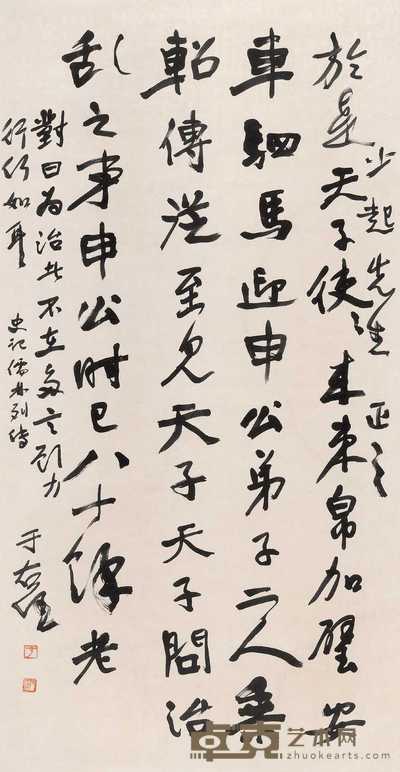 於是天子使束帛加璧安
少起先生正之
車駟馬迎申公弟子二人乘
軺傳從至見天子天子問治
乱之事申公時已八十餘老
對曰為治者不在多言顧力
行何如耳
史記儒林列傳
于右任
卓克艺术网
zhuokearts.com